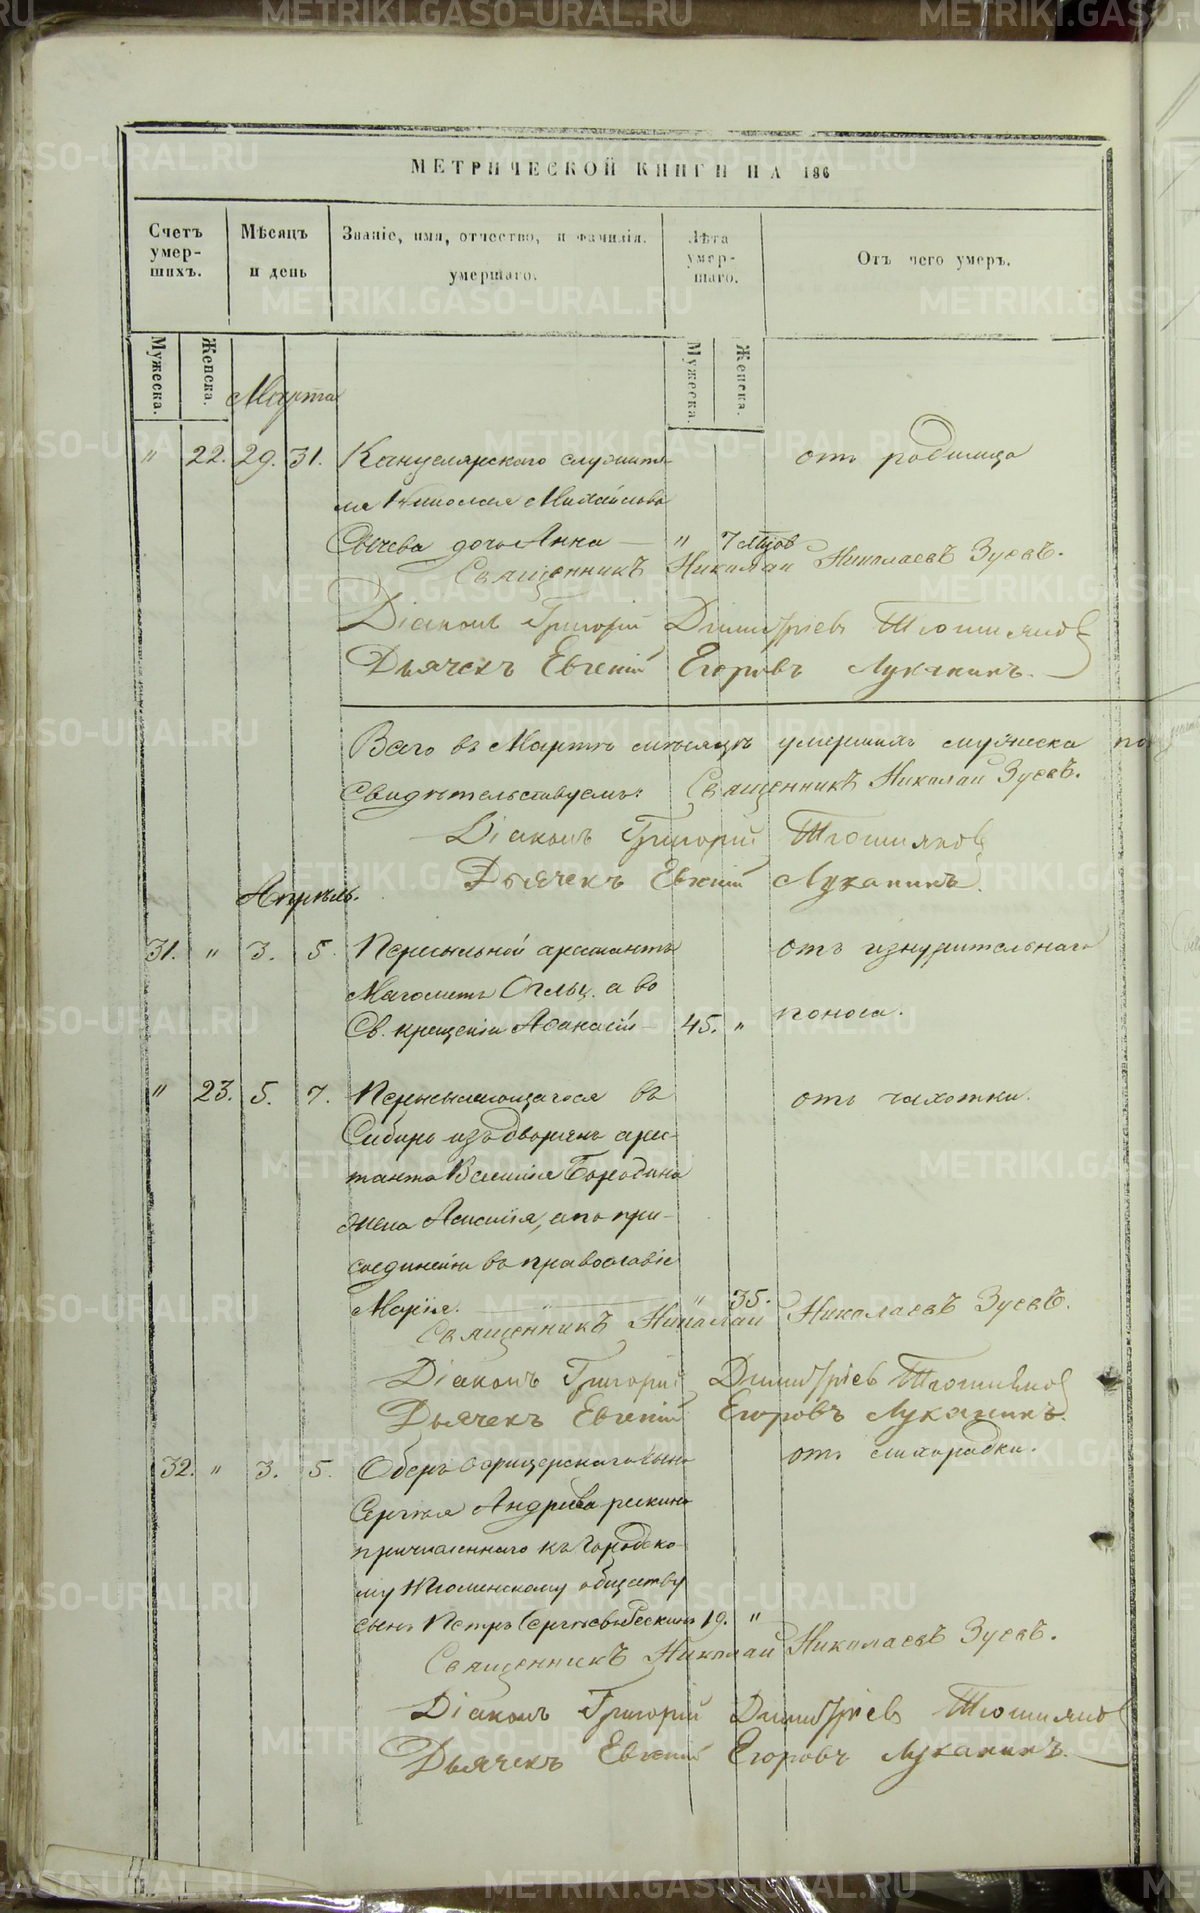 МЕТРИЧЕСКОЙ КНИГИ НА 186
Счетъ умер- шихъ.
Мѣсяцъ и день
Званіе, имя, отчество, и фамилія. умершаго.
Лѣта умер- шаго.
Отъ чего умеръ.
Мужеска. Женска.
Мужеска. Женска.
Марта
" 22. 29. 31. Канцелярскаго служите- отъ родимца
ля Николая Михайлова
Сычева дочь Анна — " 7 мѣсяцов
Священникъ Николай Николаевъ Зуевъ.
Діаконъ Григорій Димитріевъ
Дьячекъ Евгеній Егоровъ Луканинъ.
Всего въ Мартѣ мѣсяцѣ умершихъ мужеска по
Свидѣтельствуемъ: Священникъ Николай Зуевъ.
Діаконъ Григорій
Дьячекъ Евгеній Луканинъ.
Апрѣль.
31. " 3. 5. Пересыльной арестантъ отъ изнурительнаго
Магометъ Оглы, а во
Св. крещеніи Аѳанасій — 45. " поноса.
" 23. 5. 7. Пересылающагося въ отъ чахотки.
Сибирь изъ дворянъ арес-
танта Василія Бородина
жена Амалія, а по при-
соединеніи въ православіе
Марія. — " 35.
Священникъ Николай Николаевъ Зуевъ.
Діаконъ Григорій Димитріевъ
Дьячекъ Евгеній Егоровъ Луканинъ.
32. " 3. 5. Оберъ офицерскаго сына отъ лихорадки.
Сергѣя Андреева
причисленнаго къ Городско-
му Тюменскому обществу
сынъ Петръ Сергѣевъ 19. "
Священникъ Николай Николаевъ Зуевъ.
Діаконъ Григорій Димитріевъ
Дьячекъ Евгеній Егоровъ Луканинъ.
METRIKI.GASO-URAL.RU